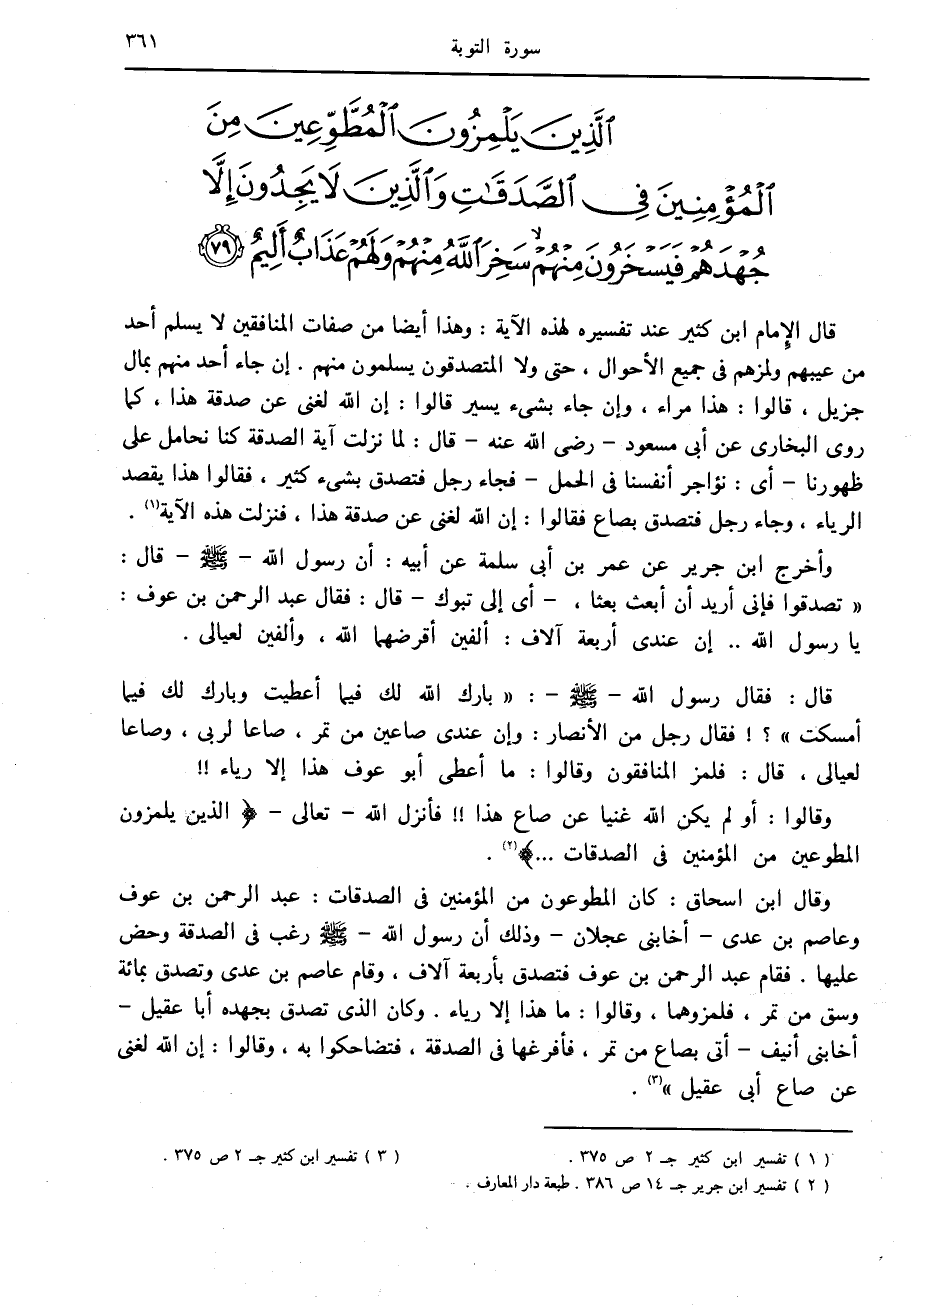 سورة التوبة ٣٦١
ٱلَّذِينَ يَلْمِزُونَ ٱلْمُطَّوِّعِينَ مِنَ
ٱلْمُؤْمِنِينَ فِى ٱلصَّدَقَٰتِ وَٱلَّذِينَ لَا يَجِدُونَ إِلَّا
جُهْدَهُمْ فَيَسْخَرُونَ مِنْهُمْ ۙ سَخِرَ ٱللَّهُ مِنْهُمْ وَلَهُمْ عَذَابٌ أَلِيمٌ ﴿٧٩﴾
قال الإِمام ابن كثير عند تفسيره لهذه الآية : وهذا أيضا من صفات المنافقين لا يسلم أحد
من عيبهم ولمزهم فى جميع الأحوال ، حتى ولا المتصدقون يسلمون منهم . إن جاء أحد منهم بمال
جزيل ، قالوا : هذا مراء ، وإن جاء بشىء يسير قالوا : إن الله لغنى عن صدقة هذا ، كما
روى البخارى عن أبى مسعود – رضى الله عنه – قال : لما نزلت آية الصدقة كنا نحامل على
ظهورنا – أى : نؤاجر أنفسنا فى الحمل – فجاء رجل فتصدق بشىء كثير ، فقالوا هذا يقصد
الرياء ، وجاء رجل فتصدق بصاع فقالوا : إن الله لغنى عن صدقة هذا ، فنزلت هذه الآية(١) .
وأخرج ابن جرير عن عمر بن أبى سلمة عن أبيه : أن رسول الله – ﷺ – قال :
« تصدقوا فإنى أريد أن أبعث بعثا ، – أى إلى تبوك – قال : فقال عبد الرحمن بن عوف :
يا رسول الله .. إن عندى أربعة آلاف : ألفين أقرضهما الله ، وألفين لعيالى .
قال : فقال رسول الله – ﷺ – : « بارك الله لك فيما أعطيت وبارك لك فيما
أمسكت » ؟ ! فقال رجل من الأنصار : وإن عندى صاعين من تمر ، صاعا لربى ، وصاعا
لعيالى ، قال : فلمز المنافقون وقالوا : ما أعطى أبو عوف هذا إلا رياء !!
وقالوا : أو لم يكن الله غنيا عن صاع هذا !! فأنزل الله – تعالى – ﴿ الذين يلمزون
المطوعين من المؤمنين فى الصدقات ...﴾(٢) .
وقال ابن اسحاق : كان المطوعون من المؤمنين فى الصدقات : عبد الرحمن بن عوف
وعاصم بن عدى – أخابنى عجلان – وذلك أن رسول الله – ﷺ رغب فى الصدقة وحض
عليها . فقام عبد الرحمن بن عوف فتصدق بأربعة آلاف ، وقام عاصم بن عدى وتصدق بمائة
وسق من تمر ، فلمزوهما ، وقالوا : ما هذا إلا رياء . وكان الذى تصدق بجهده أبا عقيل –
أخابنى أنيف – أتى بصاع من تمر ، فأفرغها فى الصدقة ، فتضاحكوا به ، وقالوا : إن الله لغنى
عن صاع أبى عقيل »(٣) .
( ١ ) تفسير ابن كثير جـ ٢ ص ٣٧٥ . ( ٣ ) تفسير ابن كثير جـ ٢ ص ٣٧٥ .
( ٢ ) تفسير ابن جرير جـ ١٤ ص ٣٨٦ . طبعة دار المعارف .